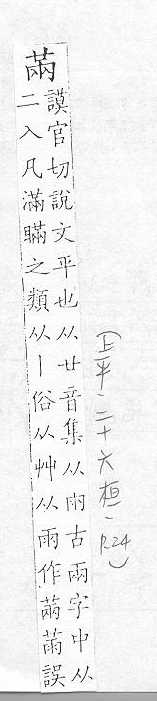 㒼
謨官切說文平也从廿音集从㒳古兩字中从
二入凡滿瞞之類从丨俗从艸从雨作誤
(上平、二十六桓、P.24)